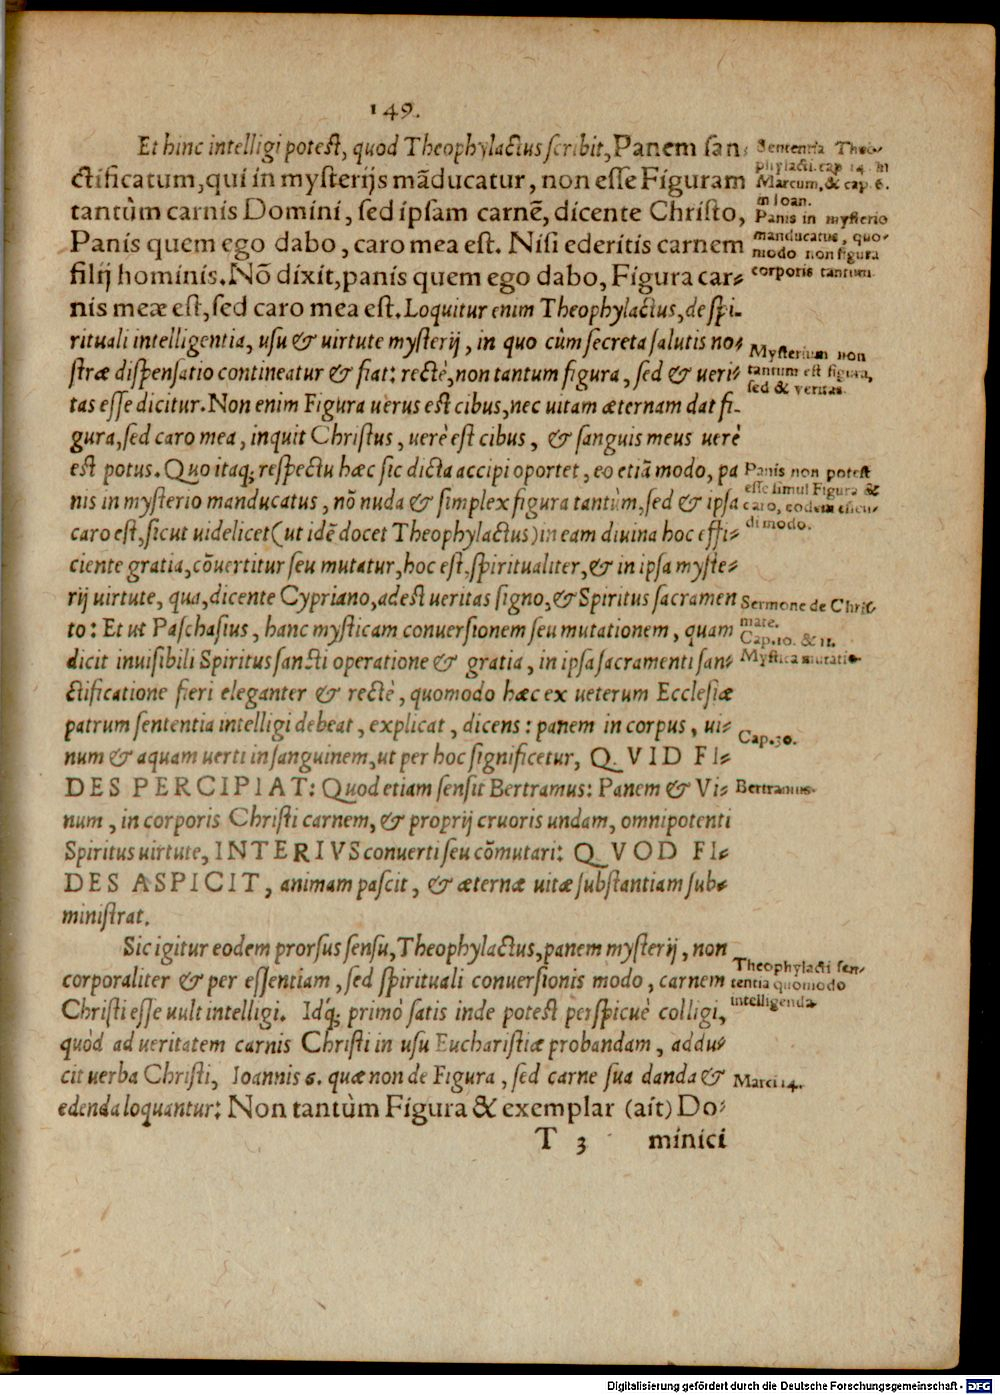 149.
Et hinc intelligi potest, quod Theophylactus scribit, Panem san-
ctificatum, qui in mysterijs mãducatur, non esse Figuram
tantùm carnis Domini, sed ipsam carnẽ, dicente Christo,
Panis quem ego dabo, caro mea est. Nisi ederitis carnem
filij hominis. Nõ dixit, panis quem ego dabo, Figura car-
nis meæ est, sed caro mea est. Loquitur enim Theophylactus, de spi-
rituali intelligentia, usu & uirtute mysterij, in quo cùm secreta salutis no-
stræ dispensatio contineatur & fiat: rectè, non tantum figura, sed & ueri-
tas esse dicitur. Non enim Figura uerus est cibus, nec uitam æternam dat fi-
gura, sed caro mea, inquit Christus, uerè est cibus, & sanguis meus uerè
est potus. Quo itaq; respectu hæc sic dicta accipi oportet, eo etiã modo, pa
nis in mysterio manducatus, nõ nuda & simplex figura tantùm, sed & ipsa
caro est, sicut uidelicet (ut idẽ docet Theophylactus) in eam diuina hoc effi-
ciente gratia, cõuertitur seu mutatur, hoc est, spiritualiter, & in ipsa myste-
rij uirtute, qua, dicente Cypriano, adest ueritas signo, & Spiritus sacramen
to: Et ut Paschasius, hanc mysticam conuersionem seu mutationem, quam
dicit inuisibili Spiritus sancti operatione & gratia, in ipsa sacramenti san-
ctificatione fieri eleganter & rectè, quomodo hæc ex ueterum Ecclesiæ
patrum sententia intelligi debeat, explicat, dicens: panem in corpus, ui-
num & aquam uerti in sanguinem, ut per hoc significetur, QVID FI-
DES PERCIPIAT: Quod etiam sensit Bertramus: Panem & Vi-
num, in corporis Christi carnem, & proprij cruoris undam, omnipotenti
Spiritus uirtute, INTERIVS conuerti seu cõmutari: QVOD FI-
DES ASPICIT, animam pascit, & æternæ uitæ substantiam sub-
ministrat.
Sic igitur eodem prorsus sensu, Theophylactus, panem mysterij, non
corporaliter & per essentiam, sed spirituali conuersionis modo, carnem
Christi esse uult intelligi. Idq; primò satis inde potest perspicuè colligi,
quòd ad ueritatem carnis Christi in usu Eucharistiæ probandam, addu-
cit uerba Christi, Ioannis 6. quæ non de Figura, sed carne sua danda &
edenda loquantur: Non tantùm Figura & exemplar (ait) Do-
T 3 minici
Sententia Theo-
phylacti. cap. 14. in
Marcum, & cap. 6.
in Ioan.
Panis in mysterio
manducatus, quo-
modo non figura
corporis tantum.
Mysterium non
tantum est figura,
sed & veritas.
Panis non potest
esse simul Figura &
caro, eodem essen-
di modo.
Sermone de Chris-
mate.
Cap. 10. & 11.
Mystica mutatio.
Cap. 30.
Bertramus.
Theophylacti sen-
tentia quomodo
intelligenda.
Marci 14.
Digitalisierung gefördert durch die Deutsche Forschungsgemeinschaft - DFG